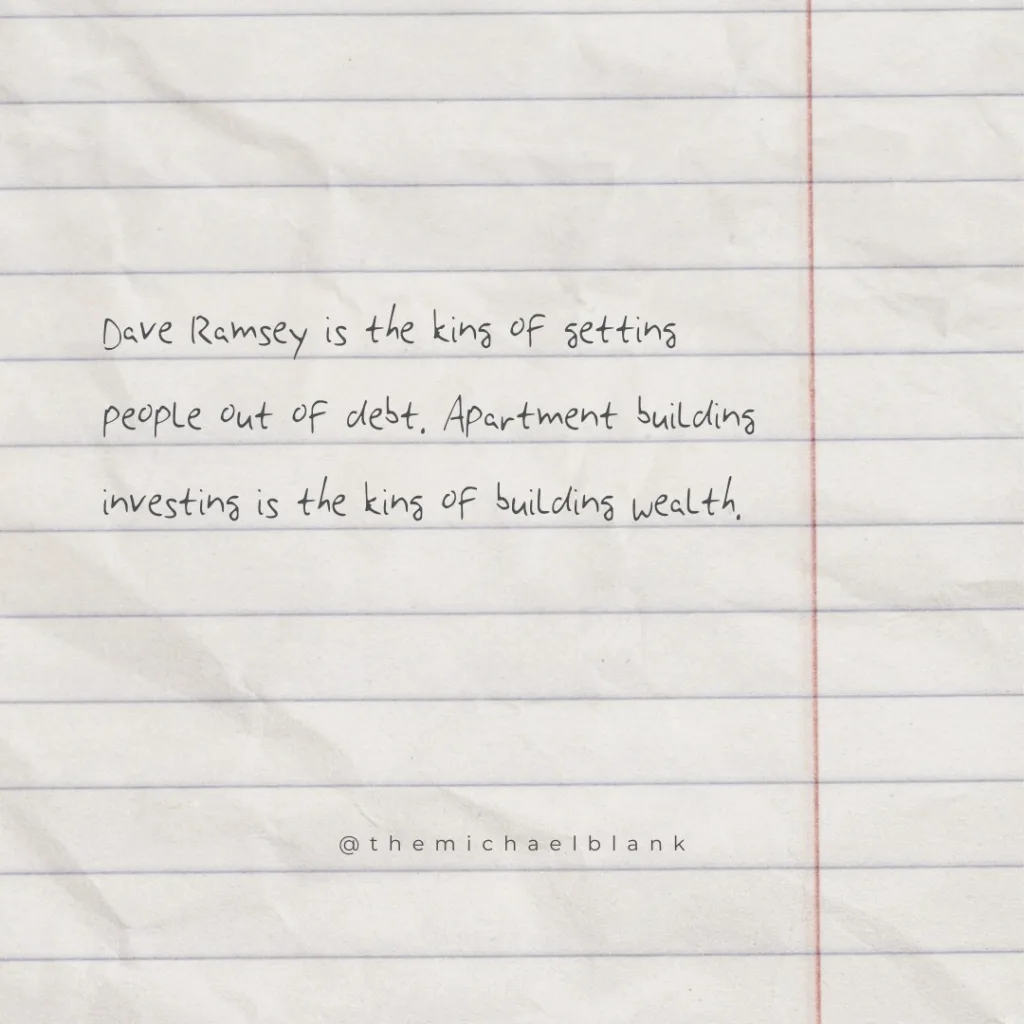 Dave Ramsey is the king of getting
people out of debt. Apartment building
investing is the king of building wealth.
@themichaelblank